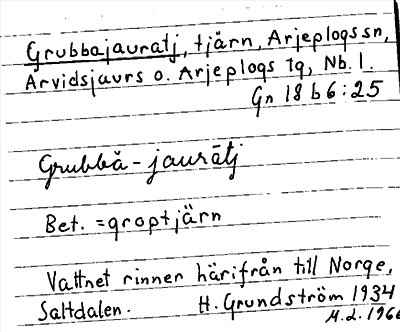 Grubbajauratj, tjärn, Arjeplogs sn,
Arvidsjaurs o. Arjeplogs tg, Nb. l.
Gn 18 b 6:25
Grubbă-jaurātj
Bet. = groptjärn
Vattnet rinner härifrån till Norge,
Saltdalen. H. Grundström 1934